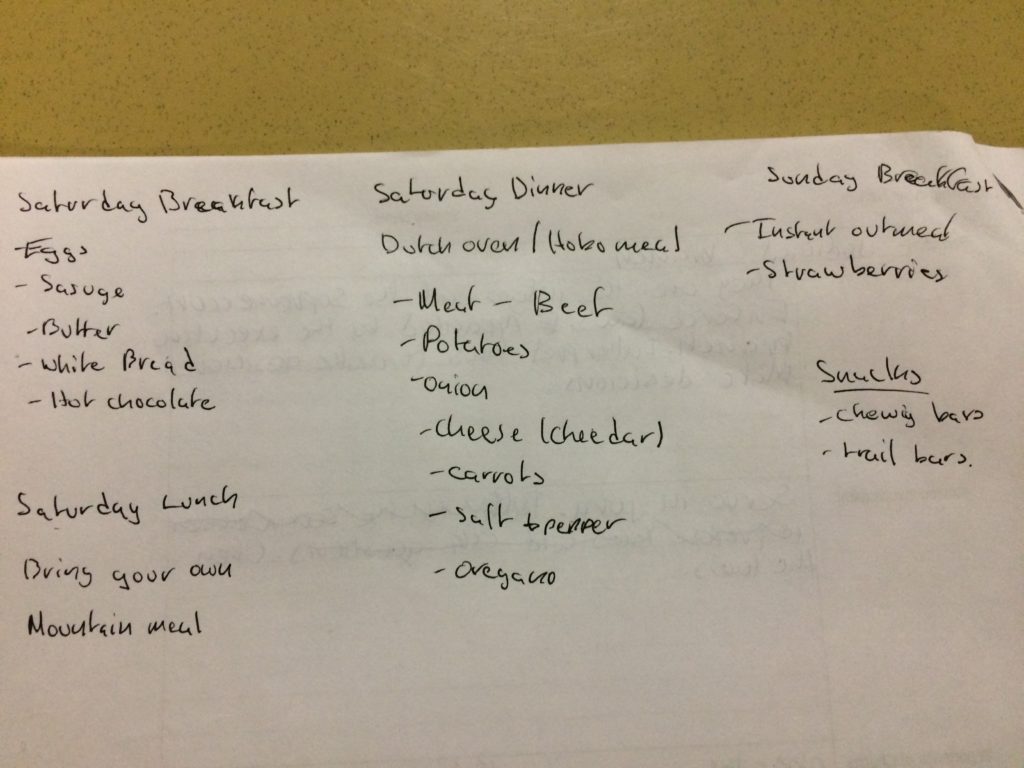 Saturday Breakfast
- Eggs
- Sasuge
- Butter
- White Bread
- Hot chocolate
Saturday Lunch
Bring your own
Mountain meal
Saturday Dinner
Dutch oven / Hobo meal
- Meat - Beef
- Potatoes
- onion
- cheese (cheedar)
- carrots
- Salt & pepper
- oregano
Sunday Breakfast
- Instant outmeal
- Strawberries
Snacks
- chewig bars
- trail bars.